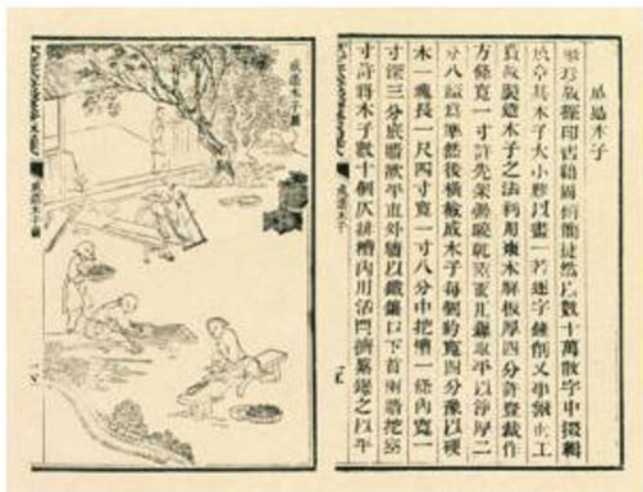 成造木子
珍版擺印書籍固稱簡捷然以數十萬散字中掇輯
成章其木子大小難以畫一若逐字鏟削又工
費故製造木子之法利用棗木解板厚四分許豎裁作
方條寬一寸許先架疊晾乾兩面取平以淨厚二
分八釐為準然後橫截成木子每個約寬四分豫以硬
木一塊長一尺四寸寬一寸八分中挖槽一條內寬一
寸深三分底牆欲平直外牆以鐵鑲口下首兩牆挖空
寸許將木子數十個仄排槽內用活門擠緊鏟之以平
成造木子
成造木子圖
成造木子圖